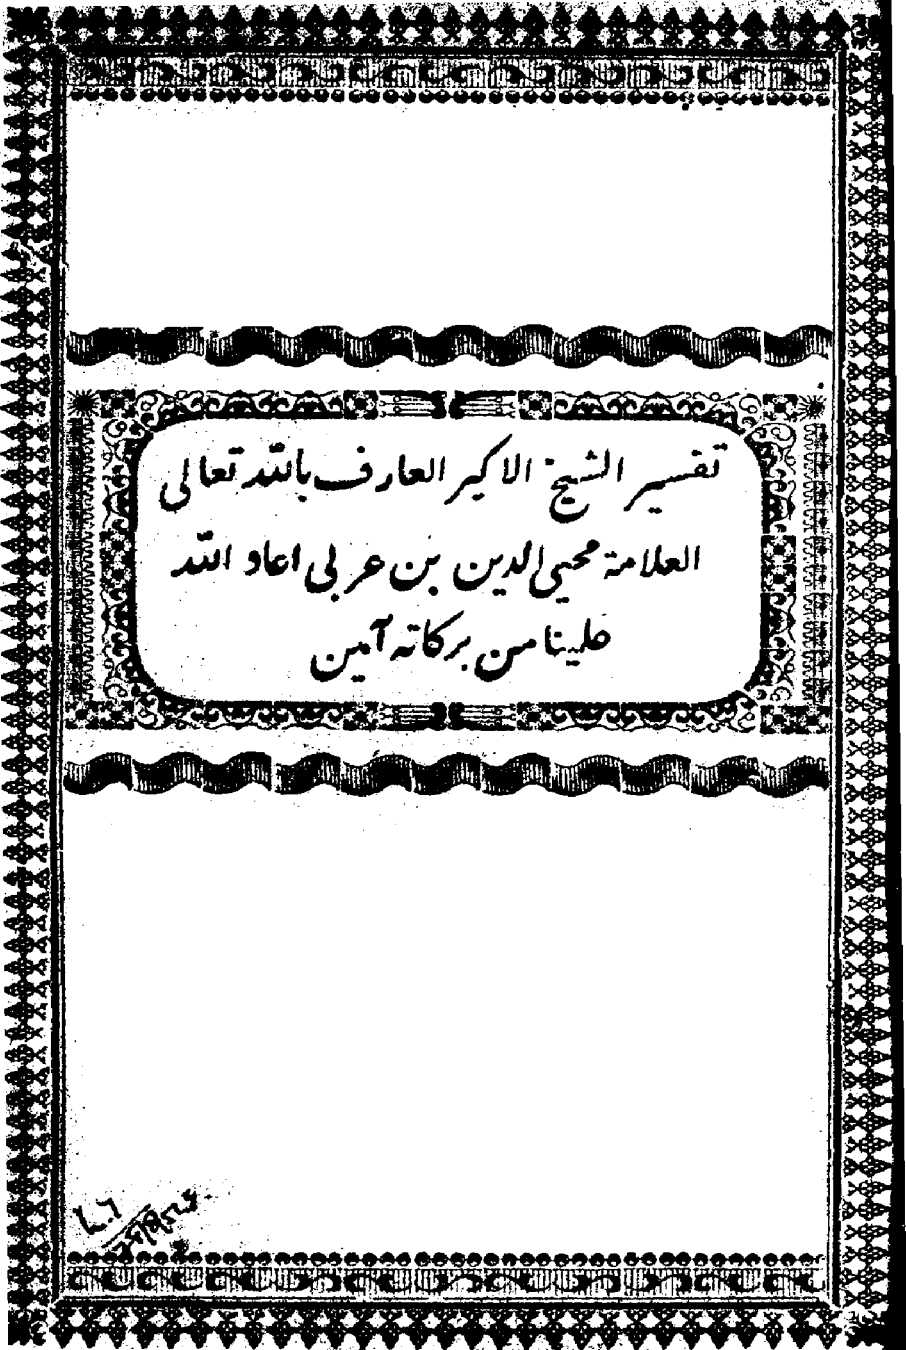 تفسير الشيخ الاكبر العارف بالله تعالى
العلامة محيي الدين بن عربي اعاد الله
علينا من بركاته آمين